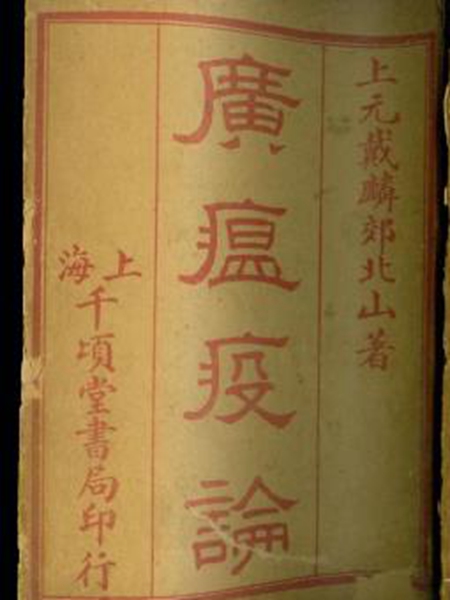 上元戴麟郊北山著
廣瘟疫論
上海
千頃堂書局印行